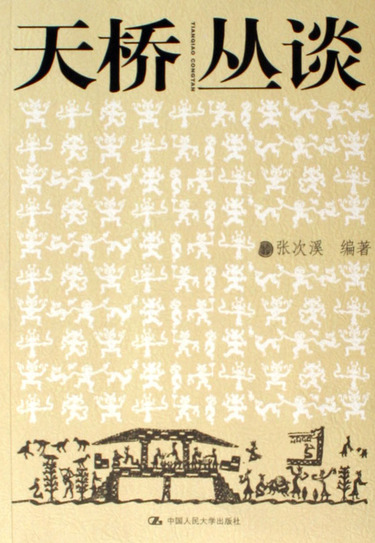 天桥丛谈
TIANQIAO CONGTAN
张次溪 编著
中国人民大学出版社